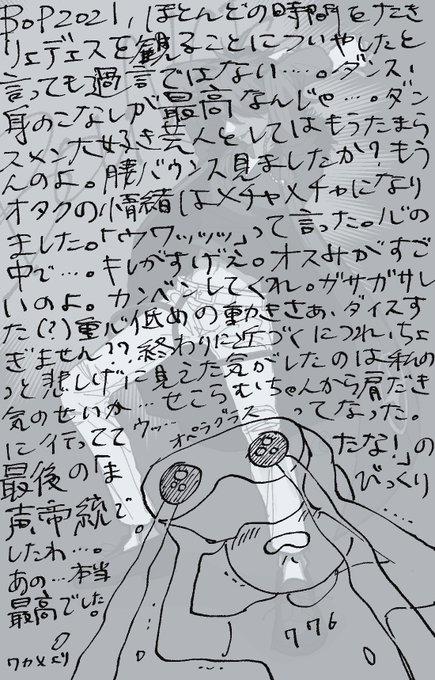 BoP2021，ほとんどの時間をたき
リェデスを観ることについやしたと
言っても過言ではない……。ダンス、
身のこなしが最高なんじゃ…。ダン
スメン大好き芸人としてはもうたまら
んのよ。腰バウンス見ましたか？もう
オタクの情緒はメチャメチャになり
ました。「ウワッッッ」って言った。心の
中で…。キレがすげえ。オスみがすご
いのよ。カンベンしてくれ。ガサガサし
た(？)重心低めの動きさぁ、ダイスす
ぎません??終わりに近づくにつれ、ちょ
っと悲しげに見えた気がしたのは私の
気のせいか…せこらむちゃんから肩だき
に行ってて ウッ…ってなった。
オペラグラス
最後の「またな！」の
声帝統で びっくり
したわ…。
あの…本当
最高でした。
776
ワカメ